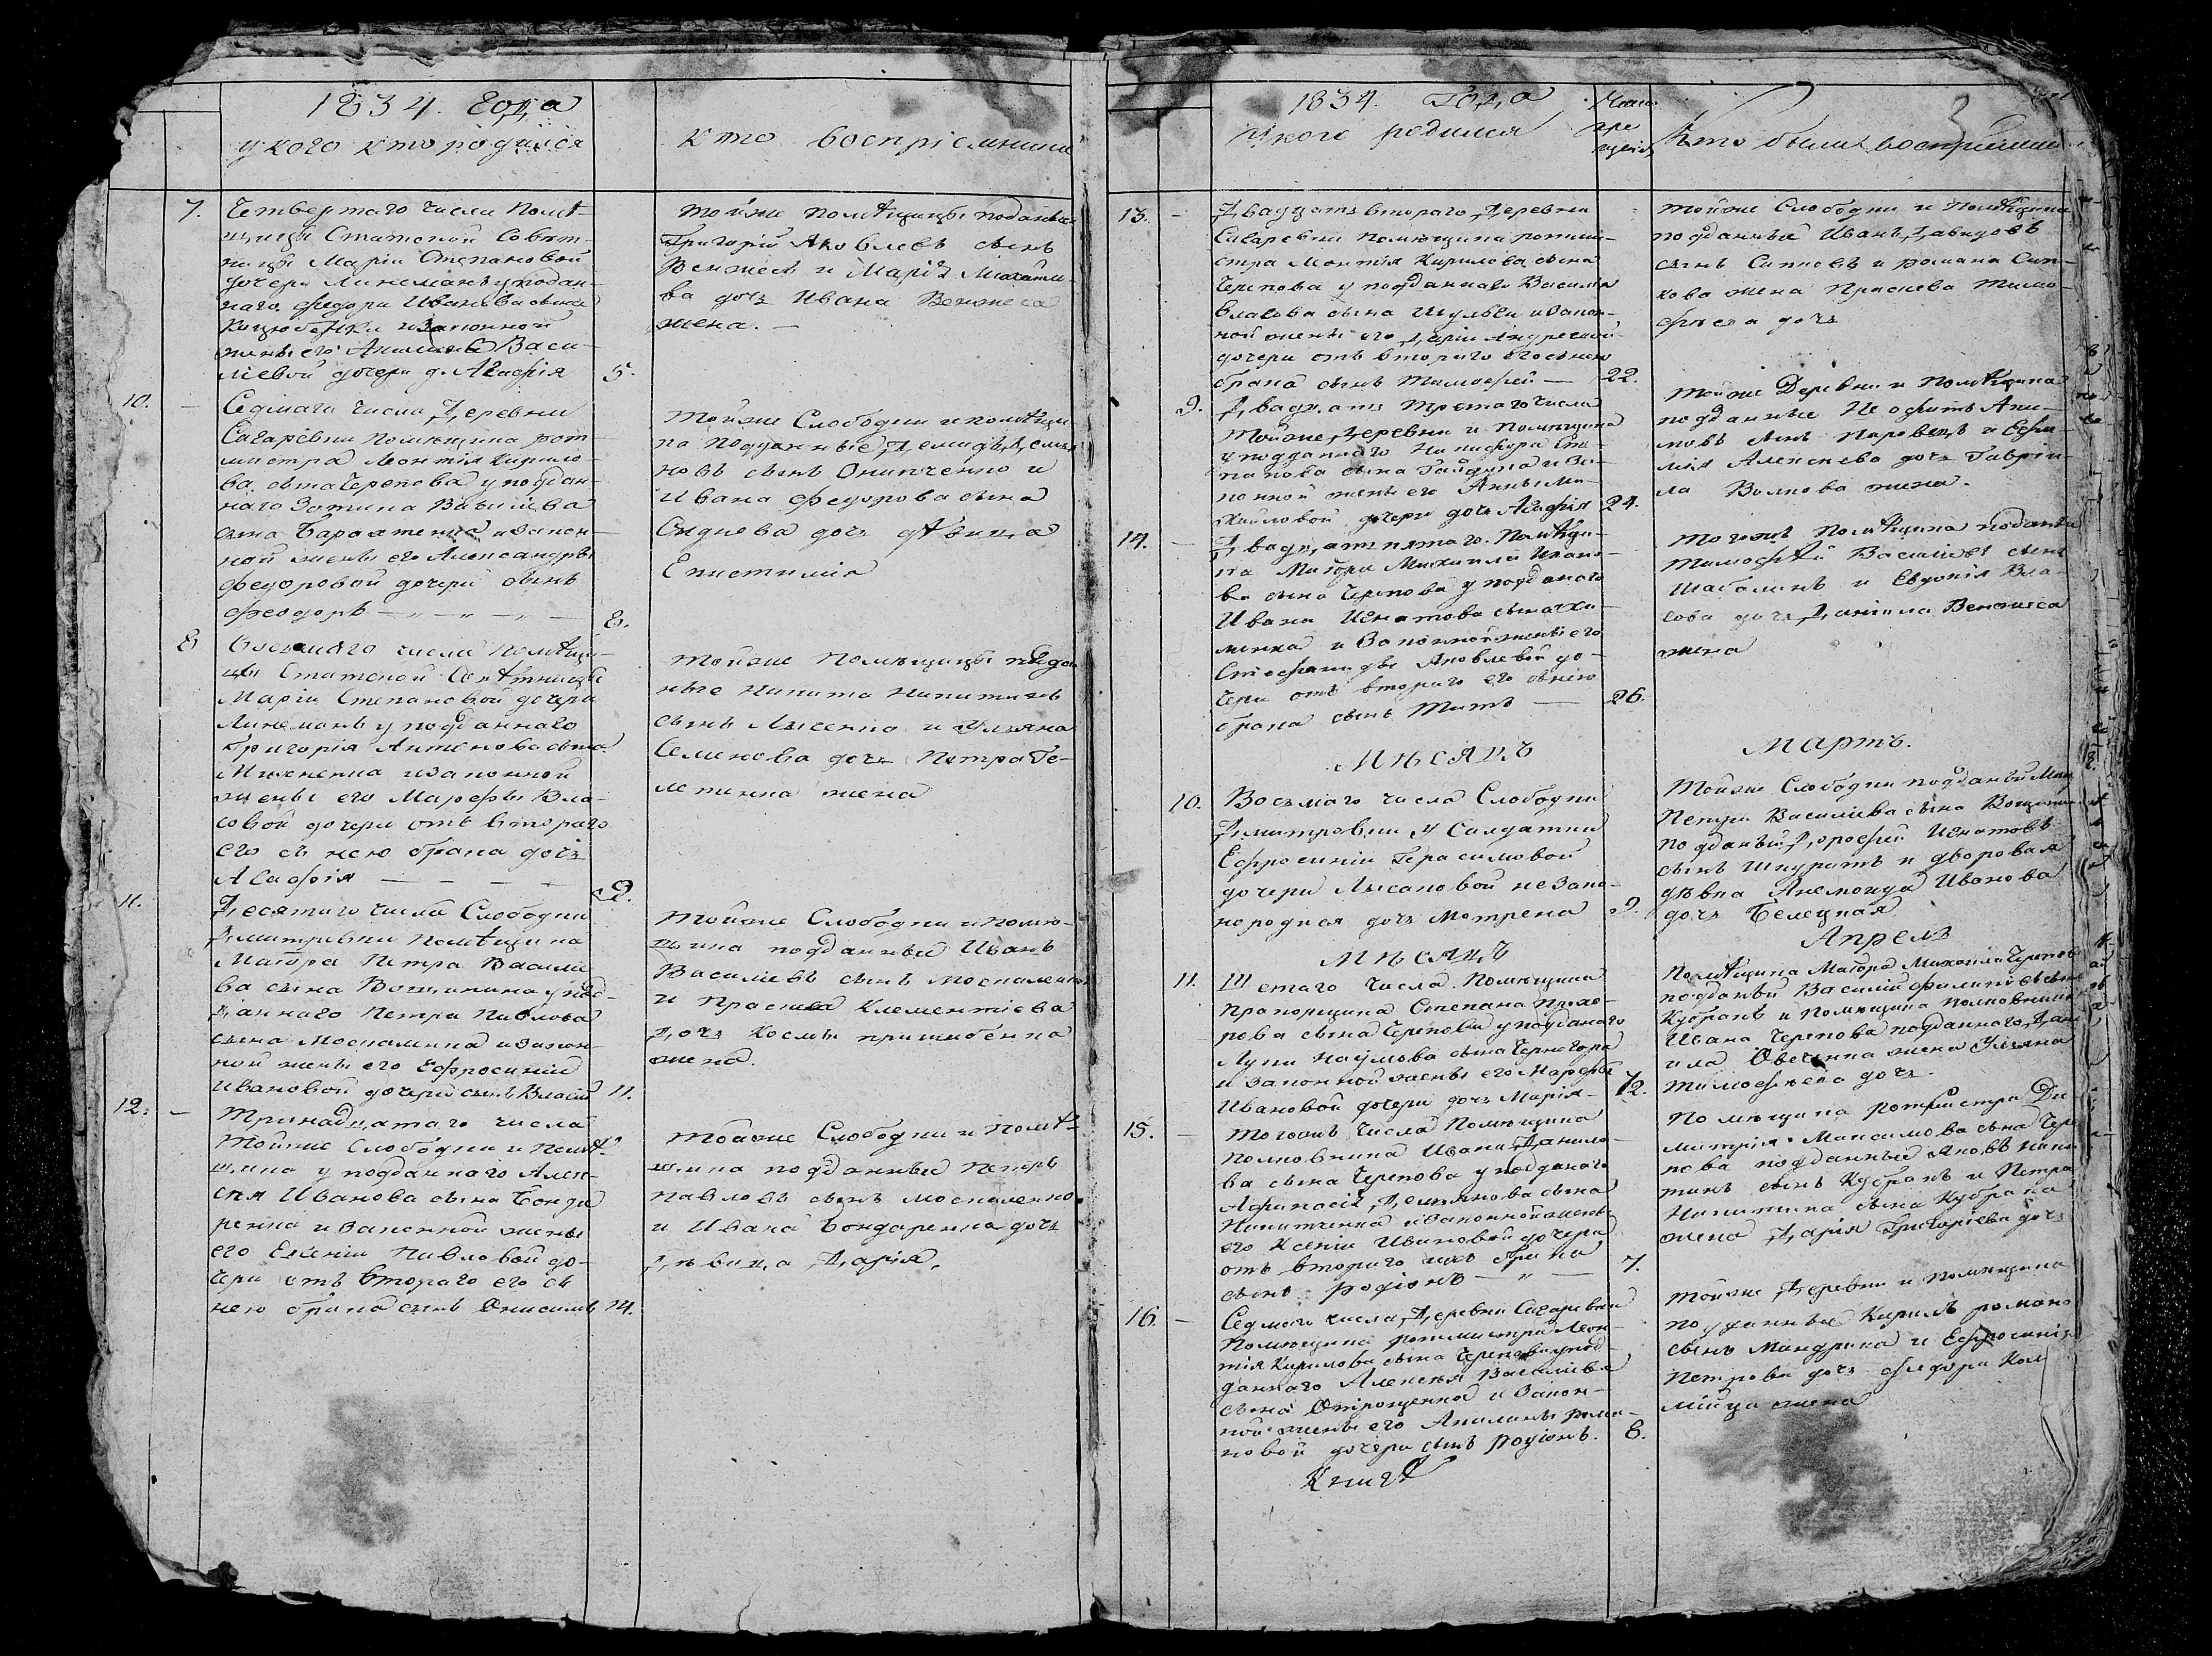 1834. Года
у кого кто родился
кто воспріемники
7.
Четвертаго числа Помѣ-
щицы Статской Совѣт-
ницы Маріи Степановой
дочери Линеманъ у поддан-
наго Федора Иванова сына
Коцюбенки и законной
жены его Акилины Васи-
ліевой дочери д. Агафія
5.
тойже помѣщицы подданные
Григорій Яковлевъ сынъ
Венжега и Марія Михайло-
ва дочь Ивана Венжеги
жена. —
10. —
Седмаго числа Деревни
Сагаревки помѣщика рот-
мистра Леонтія Кирило-
ва сына Черепова у поддан-
наго Зотика Василіева
сына и закон-
ной жены его Александры
Федоровой дочери сынъ
Феодоръ — „ — „ — „ —
8.
тойже Слободки и помѣщи-
ка подданные Демидъ Демья-
новъ сынъ Оникченко и
Ивана Федорова сына
Сиднева дочь дѣвица
Епистимія
8
Осемаго числа помѣщи-
цы Статской Совѣтницы
Маріи Степановой дочери
Линеманъ у подданнаго
Григорія Антонова сына
и законной
жены его Марфы Вла-
совой дочери отъ втораго
его съ нею брака дочь
Агафія — — — —
9.
тойже помѣщицы подда-
ные Никита Никитинъ
сынъ Лысенко и Ульяна
Семенова дочь Петра Ге-
летенка жена
11.
Десятаго числа Слободки
Дмитревки помѣщика
Маіора Петра Василіе
ва сына Вощинина у под-
даннаго Петра Павлова
сына Москаленка и закон-
ной жены его Ефросиніи
Ивановой дочери сынъ Власій
11.
тойже Слободки и помѣ-
щика подданные Иванъ
Василіевъ сынъ Москаленко
и Праскева Клементіева
дочь Космы
жена.
12. —
Тринадцатаго числа
тойже Слободки и помѣ-
щика у подданнаго Алек-
сѣя Иванова сына Бонда
ренка и законной жены
его Евгеніи Павловой до-
чери отъ втораго его съ
нею брака сынъ Онисимъ
14.
тойже Слободки и помѣ-
щика подданные Петръ
Павловъ сынъ Москаленко
и Ивана Бондаренка дочь
дѣвица Дарія.
1834. Года
У кого родился
Число
кре
щенія
Кто были воспріемники
13. —
Двадцать втораго Деревни
Сагаревки помѣщика ротми-
стра Леонтія Кирилова сына
Черепова у подданнаго Василія
Власова сына и закон-
ной жены его Даріи Андреевой
дочери отъ втораго его съ нею
брака сынъ Тимофей —
22.
тойже Слободки и помѣщика
подданные Иванъ Давидовъ
сынъ и Романа
жена Праскева Тимо-
фѣева дочь
9.
Двадцать третаго числа
тойже Деревни и помѣщика
у подданнаго Никифора Сте-
панова сына Гайдука и за-
конной жены его Анны Ми-
хайловой дочери дочь Агафія
24.
тойже Деревни и помѣщика
подданные Неофитъ Аки-
мовъ сынъ и Ефи-
мія Алексѣева дочь Гаврии-
ла Волкова жена.
14. —
Двадцать пятаго Помѣщи-
ка Маіора Михаила Ивано-
ва сына Черепова у подданаго
Ивана Игнатова сына
и законной жены его
Стефаниды Яковлевой до-
чери отъ втораго его съ нею
брака сынъ Титъ —
26.
Тогожъ помѣщика подданые
Тимофѣй Василіевъ сынъ
Шаболинъ и Евдокія Вла-
сова дочь Даніила Венжега
жена
Мѣсяцъ
Мартъ.
10.
Восьмаго числа Слободки
Дмитревки у Салдатки
Ефросиніи Герасимовой
дочери Лысаковой незако-
нородная дочь Мотрена
9.
Тойже Слободки подданый
Петра Василіева сына Вощинина
подданый Дорофей Игнатовъ
сынъ Шкуратъ и дворовая
дѣвка Анемоида Иванова
дочь Белецкая
Мѣсяцъ
Апрель
11.
Шестаго числа Помѣщика
Прапорщика Степана Прохо-
рова сына Черепова у подданаго
Луки Наумова сына Чернегора
и законной жены его Марфы
Ивановой дочери дочь Марія —
12.
Помѣщика Маіора Михаила Черепова
подданый Василій Филиповъ сынъ
Кубракъ и помѣщика Полковника
Ивана Черепова подданного Дани
ила Овечкина жена Ульяна
Тимофѣева дочь
15. —
Тогожъ числа Помѣщика
Полковника Ивана Данило-
ва сына Черепова у подданаго
Афанасія Демьянова сына
Никитченка и законной жены
его Ксеніи Ивановой дочери
отъ втораго ихъ брака
сынъ Родіонъ — „ —
7.
Помѣщика Ротмистра Ди
митрія Максимова сына Чере
пова подданные Яковъ Ники
тинъ сынъ Кубракъ и Петра
Никитина сына Кубрака
жена Дарія Григоріева дочь
16. —
Седмаго числа Деревни Сагаревки
Помѣщика ротмистра Леон-
тія Кирилова сына Черепова у под-
даннаго Алексѣя Василіева
сына Отрощенка и закон-
ной жены его Акилины Рома-
новой дочери сынъ Родіонъ.
8.
тойже Деревни и помѣщика
подданные Кирилъ Романо
сынъ Мандрика и Ефросинія
Петрова дочь Федора
жена
Книгѣ